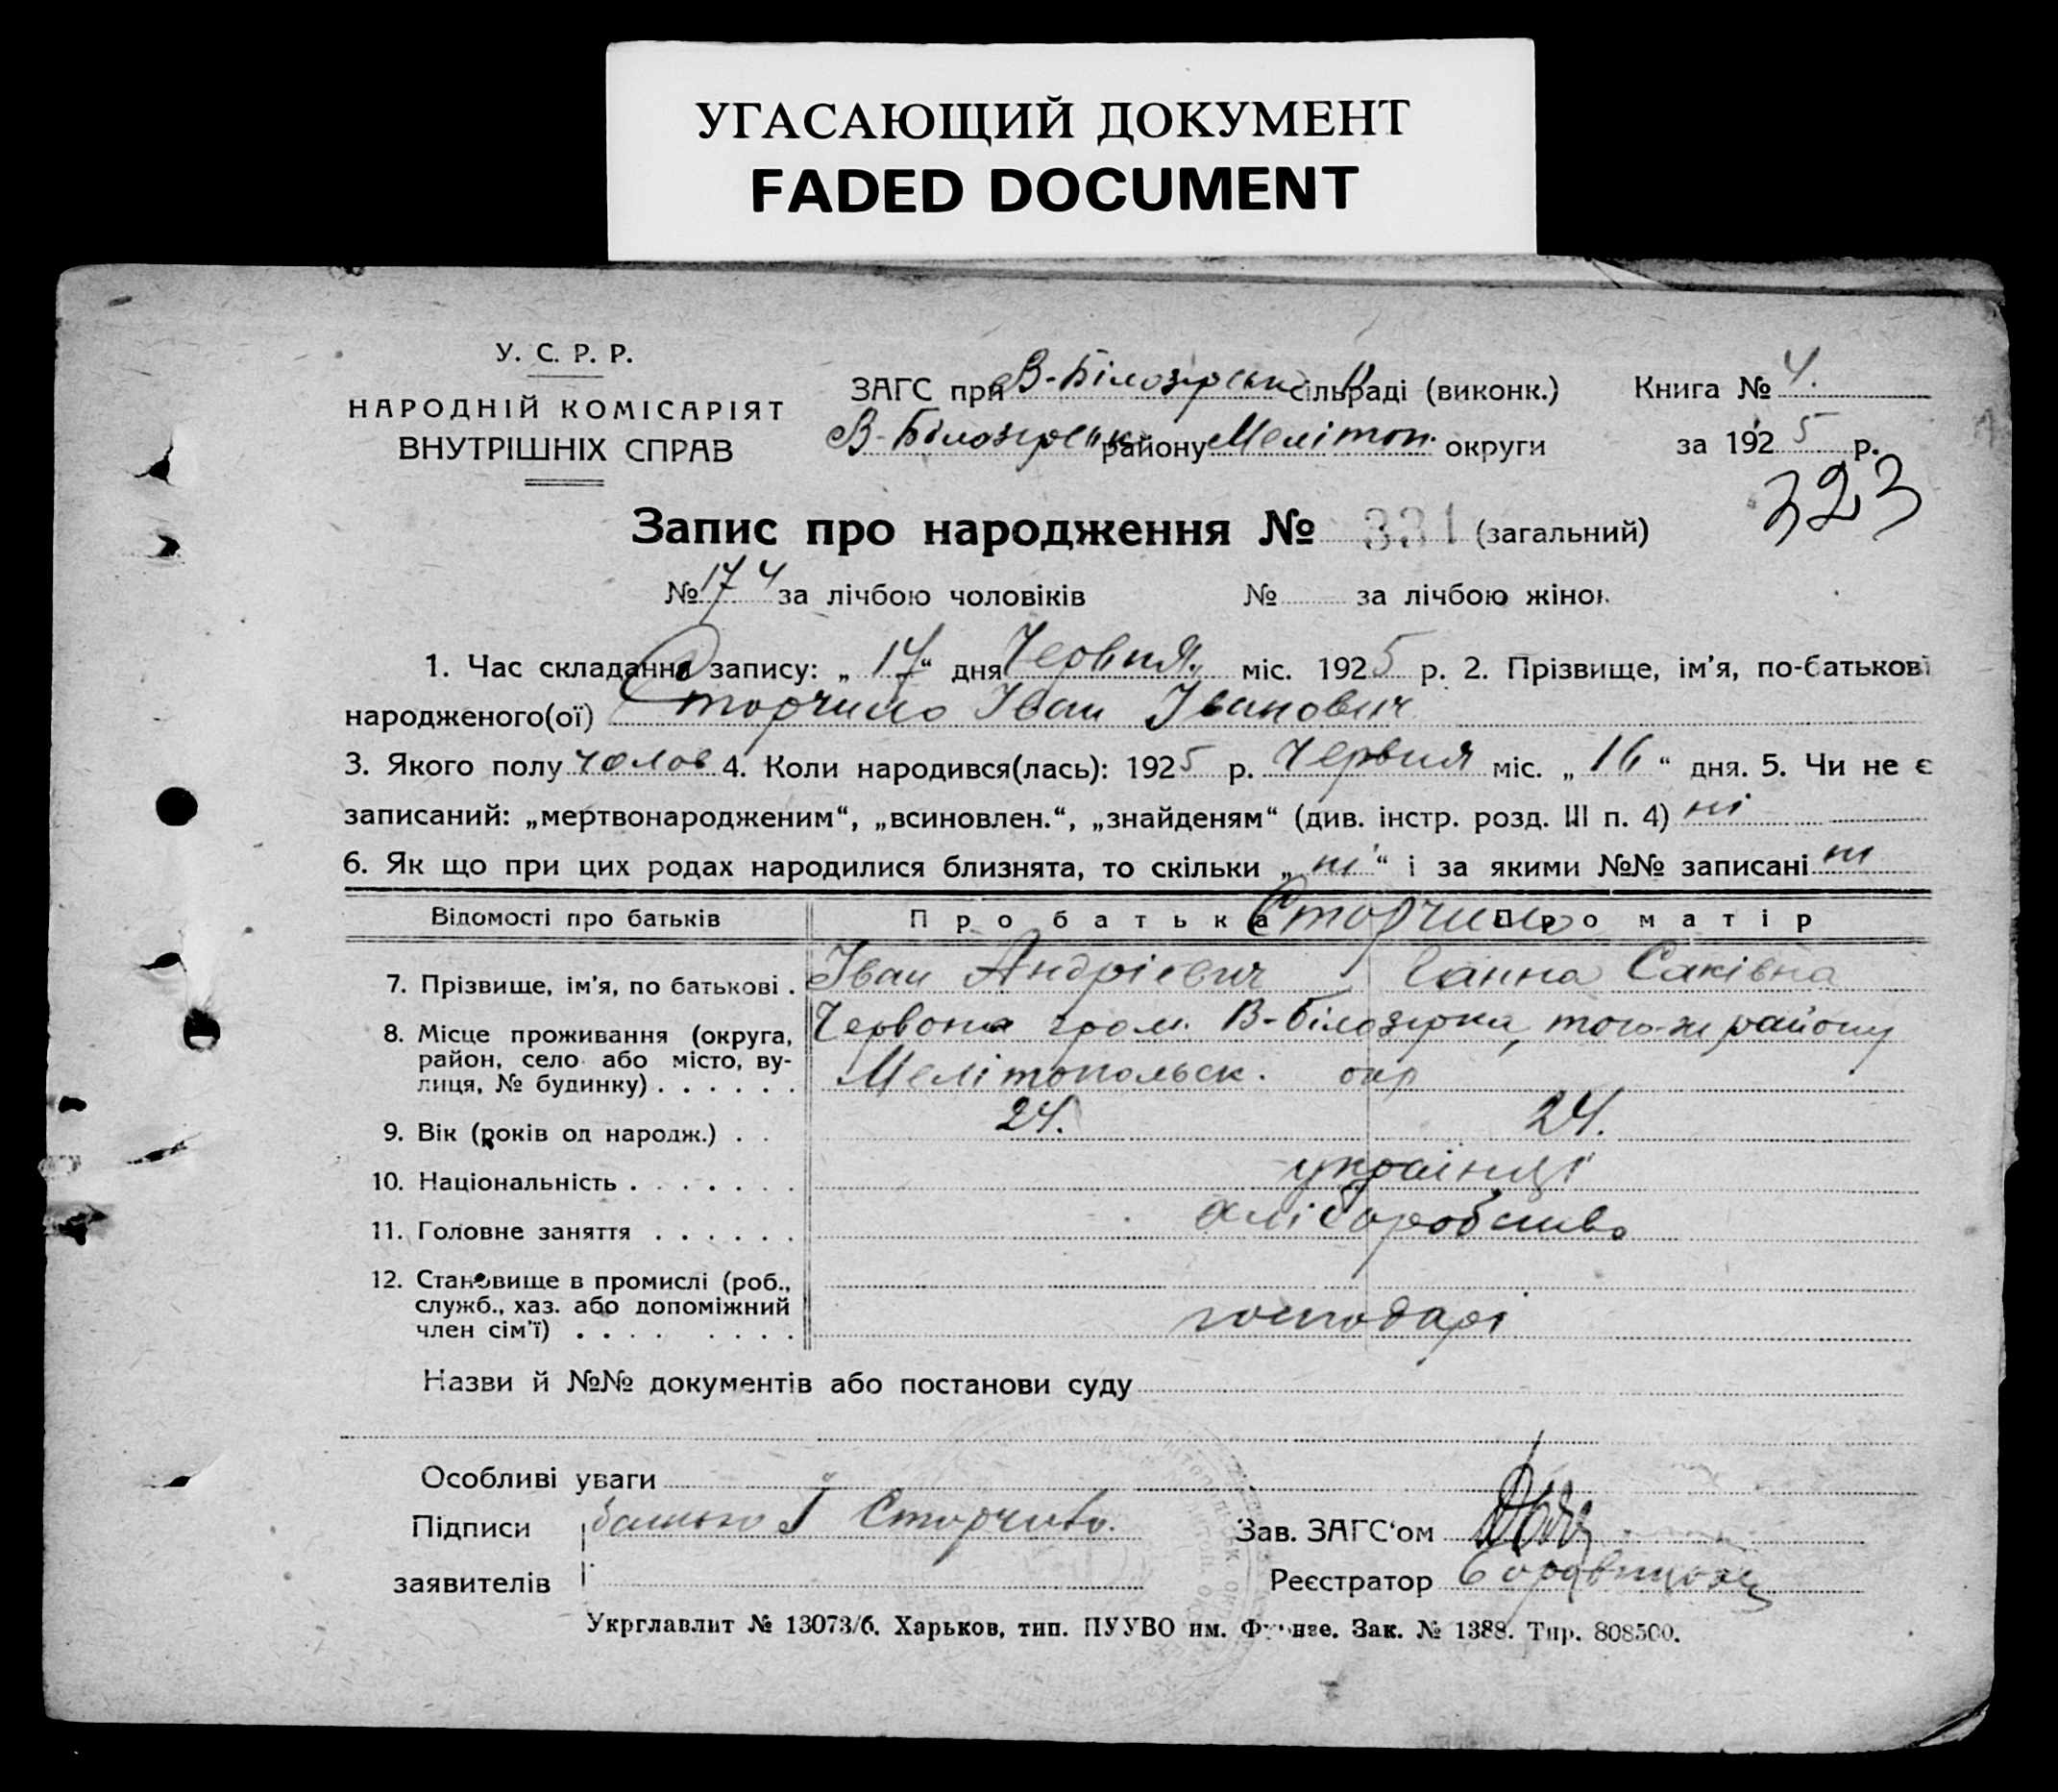 УГАСАЮЩИЙ ДОКУМЕНТ
FADED DOCUMENT
У. С. Р. Р.
НАРОДНІЙ КОМІСАРІЯТ
ВНУТРІШНІХ СПРАВ
ЗАГС при В-Білозірськ сільраді (виконк.) Книга № 4.
В-Білозірськ району Мелітоп. округи за 1925 р.
323
Запис про народження № 331 (загальний)
№ 174 за лічбою чоловіків № за лічбою жінок
1. Час складання запису: „ 17 “ дня Червня міс. 1925 р. 2. Прізвище, ім’я, по-батькові
народженого(ої) Сторчило Іван Іванович
3. Якого полу чолов 4. Коли народився(лась): 1925 р. Червня міс. „ 16 “ дня. 5. Чи не є
записаний: „мертвонародженим“, „всиновлен.“, „знайденям“ (див. інстр. розд. III п. 4) ні
6. Як що при цих родах народилися близнята, то скільки „ ні “ і за якими №№ записані ні
Відомості про батьків Про батька Про матір
Сторчило
7. Прізвище, ім’я, по батькові . Іван Андрієвич Ганна Саківна
8. Місце проживання (округа, Червона гром. В-Білозірка, того-ж району
район, село або місто, ву-
лиця, № будинку) . . . . . . Мелітопольск. окр
9. Вік (років од народж.) . . 24. 24.
10. Національність . . . . . . . українці
11. Головне заняття . . . . . . хліборобство
12. Становище в промислі (роб.,
служб., хаз. або допоміжний
член сім’ї) . . . . . . . . господарі
Назви й №№ документів або постанови суду
Особливі уваги
Підписи батько І Сторчило Зав. ЗАГС‘ом
заявителів Реєстратор
Укрглавлит № 13073/б. Харьков, тип. ПУУВО им. Фрунзе. Зак. № 1388. Тир. 808500.